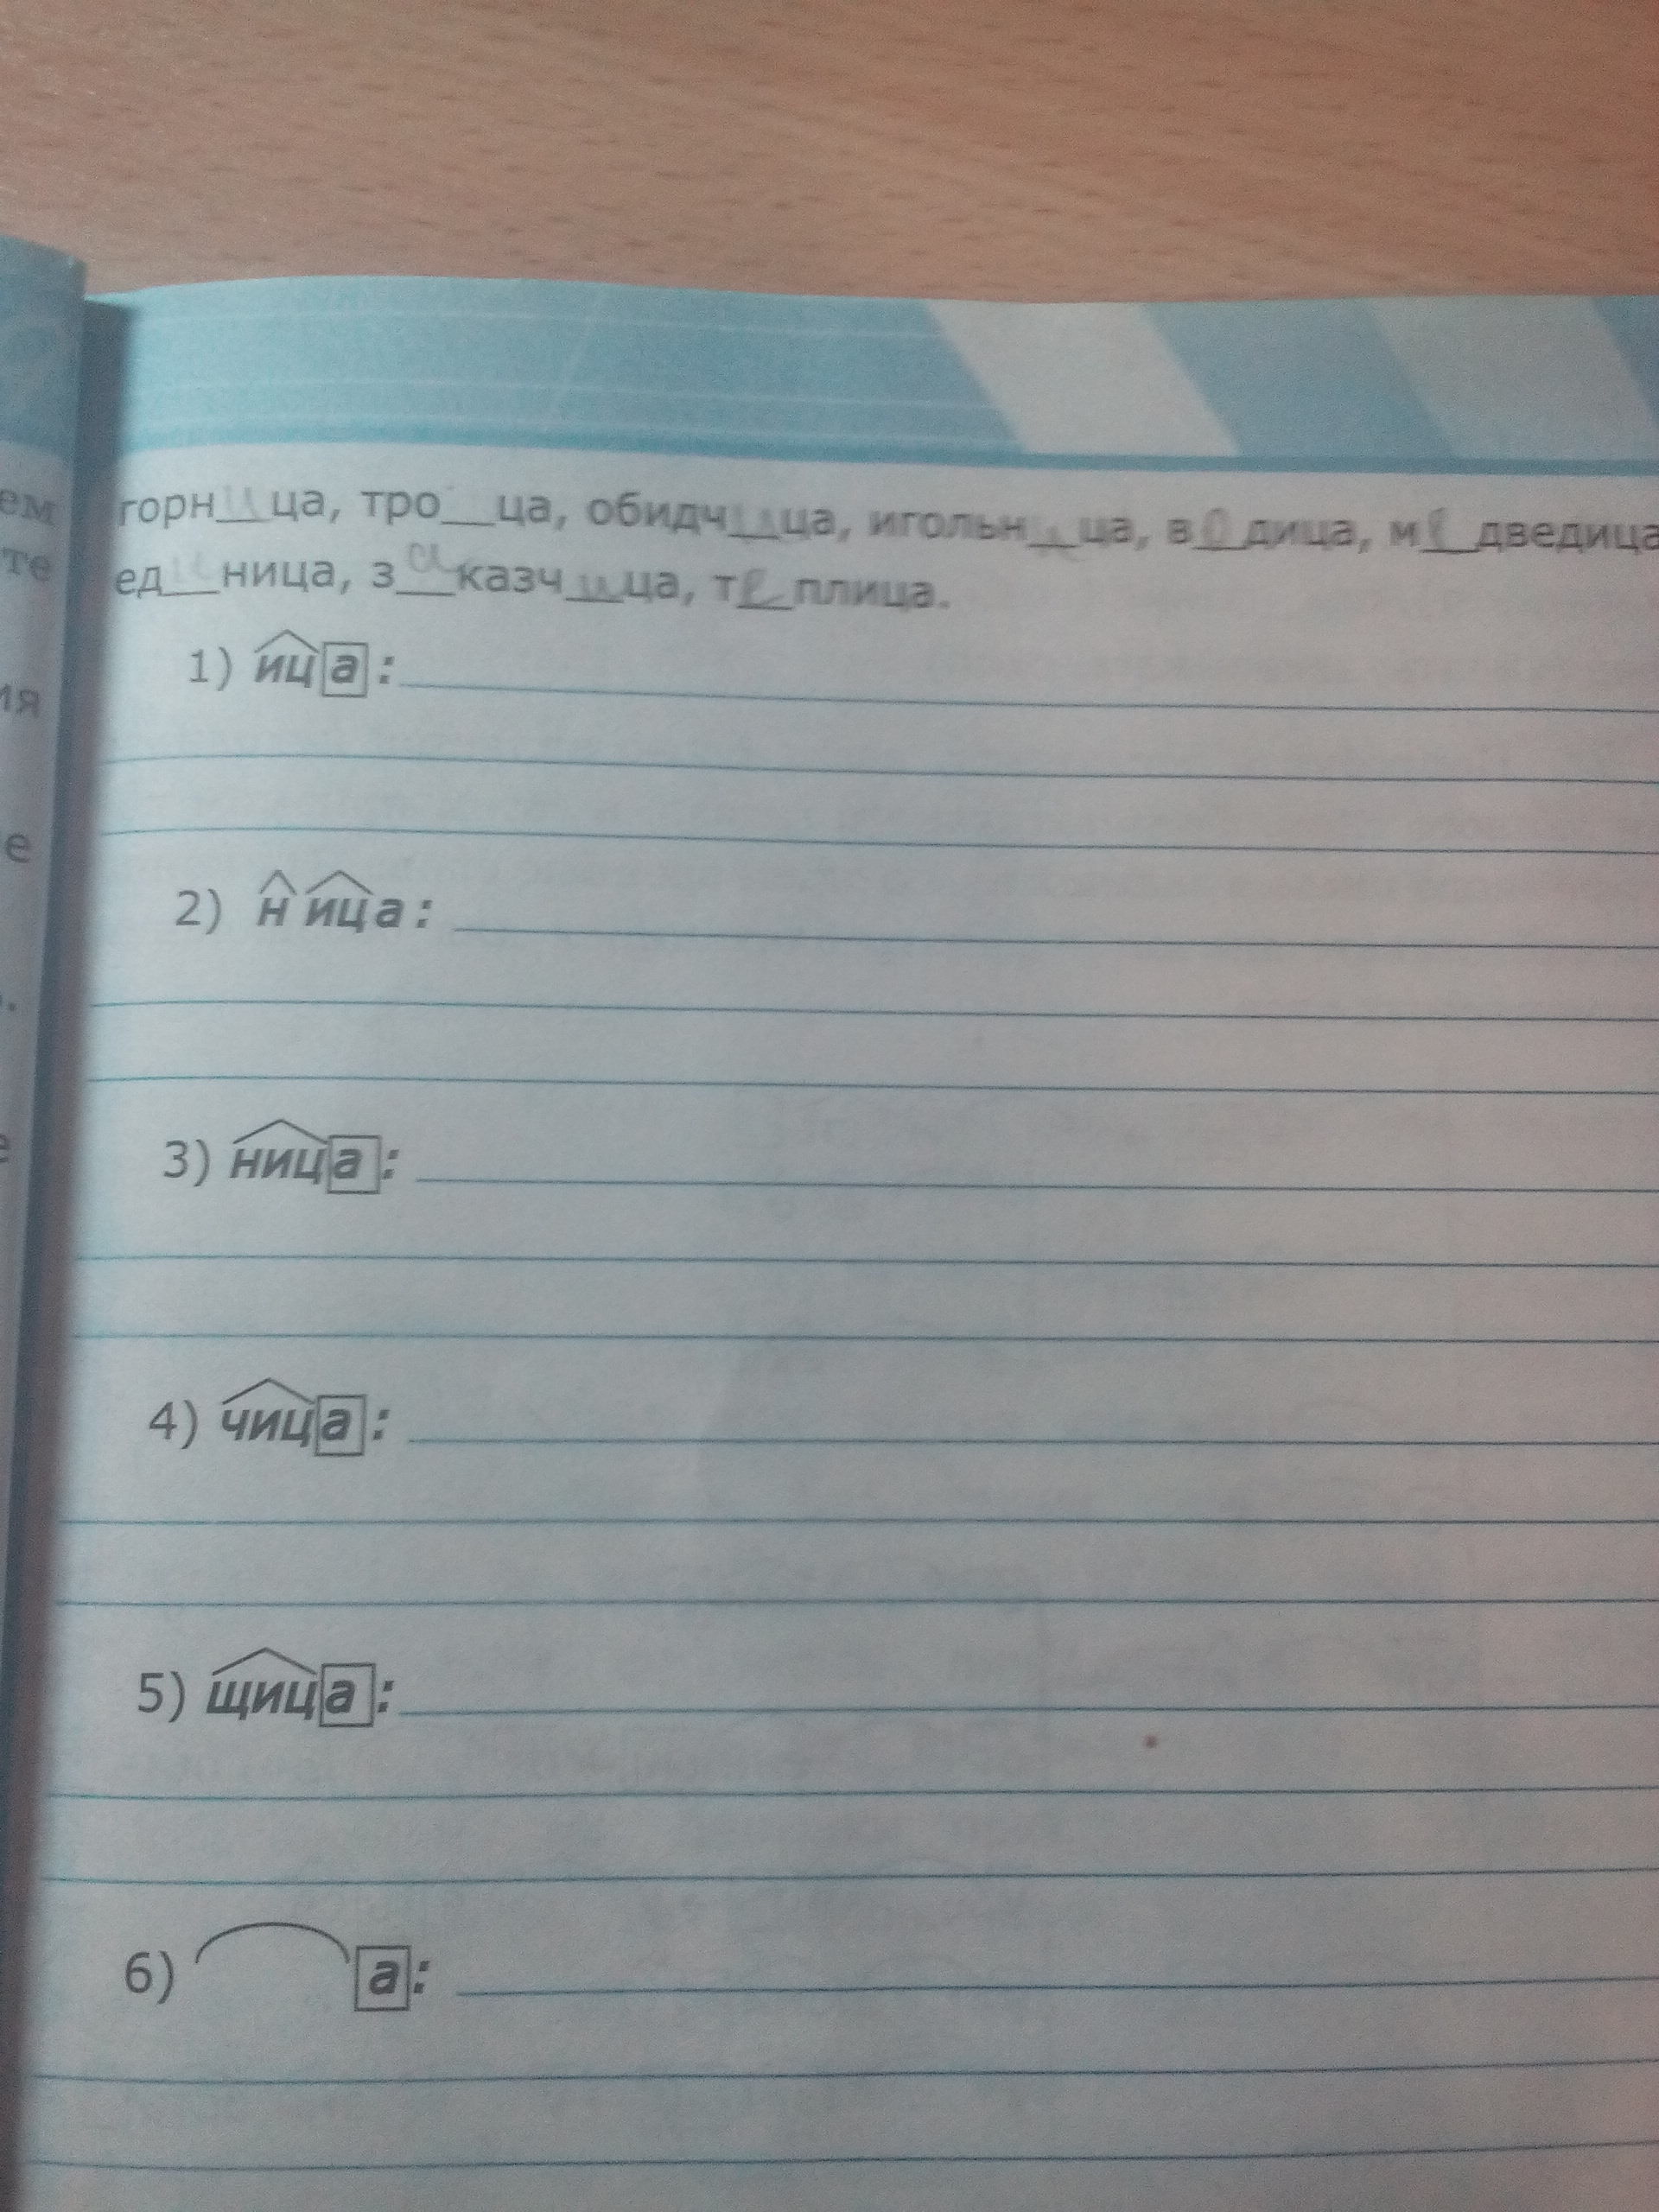 ем
те
ия
е
горница, тро__ца, обидчица, игольница, водица, медведица
единица, заказчица, теплица.
1) ица:
2) н ица:
3) ница:
4) чица:
5) щица:
6) а: